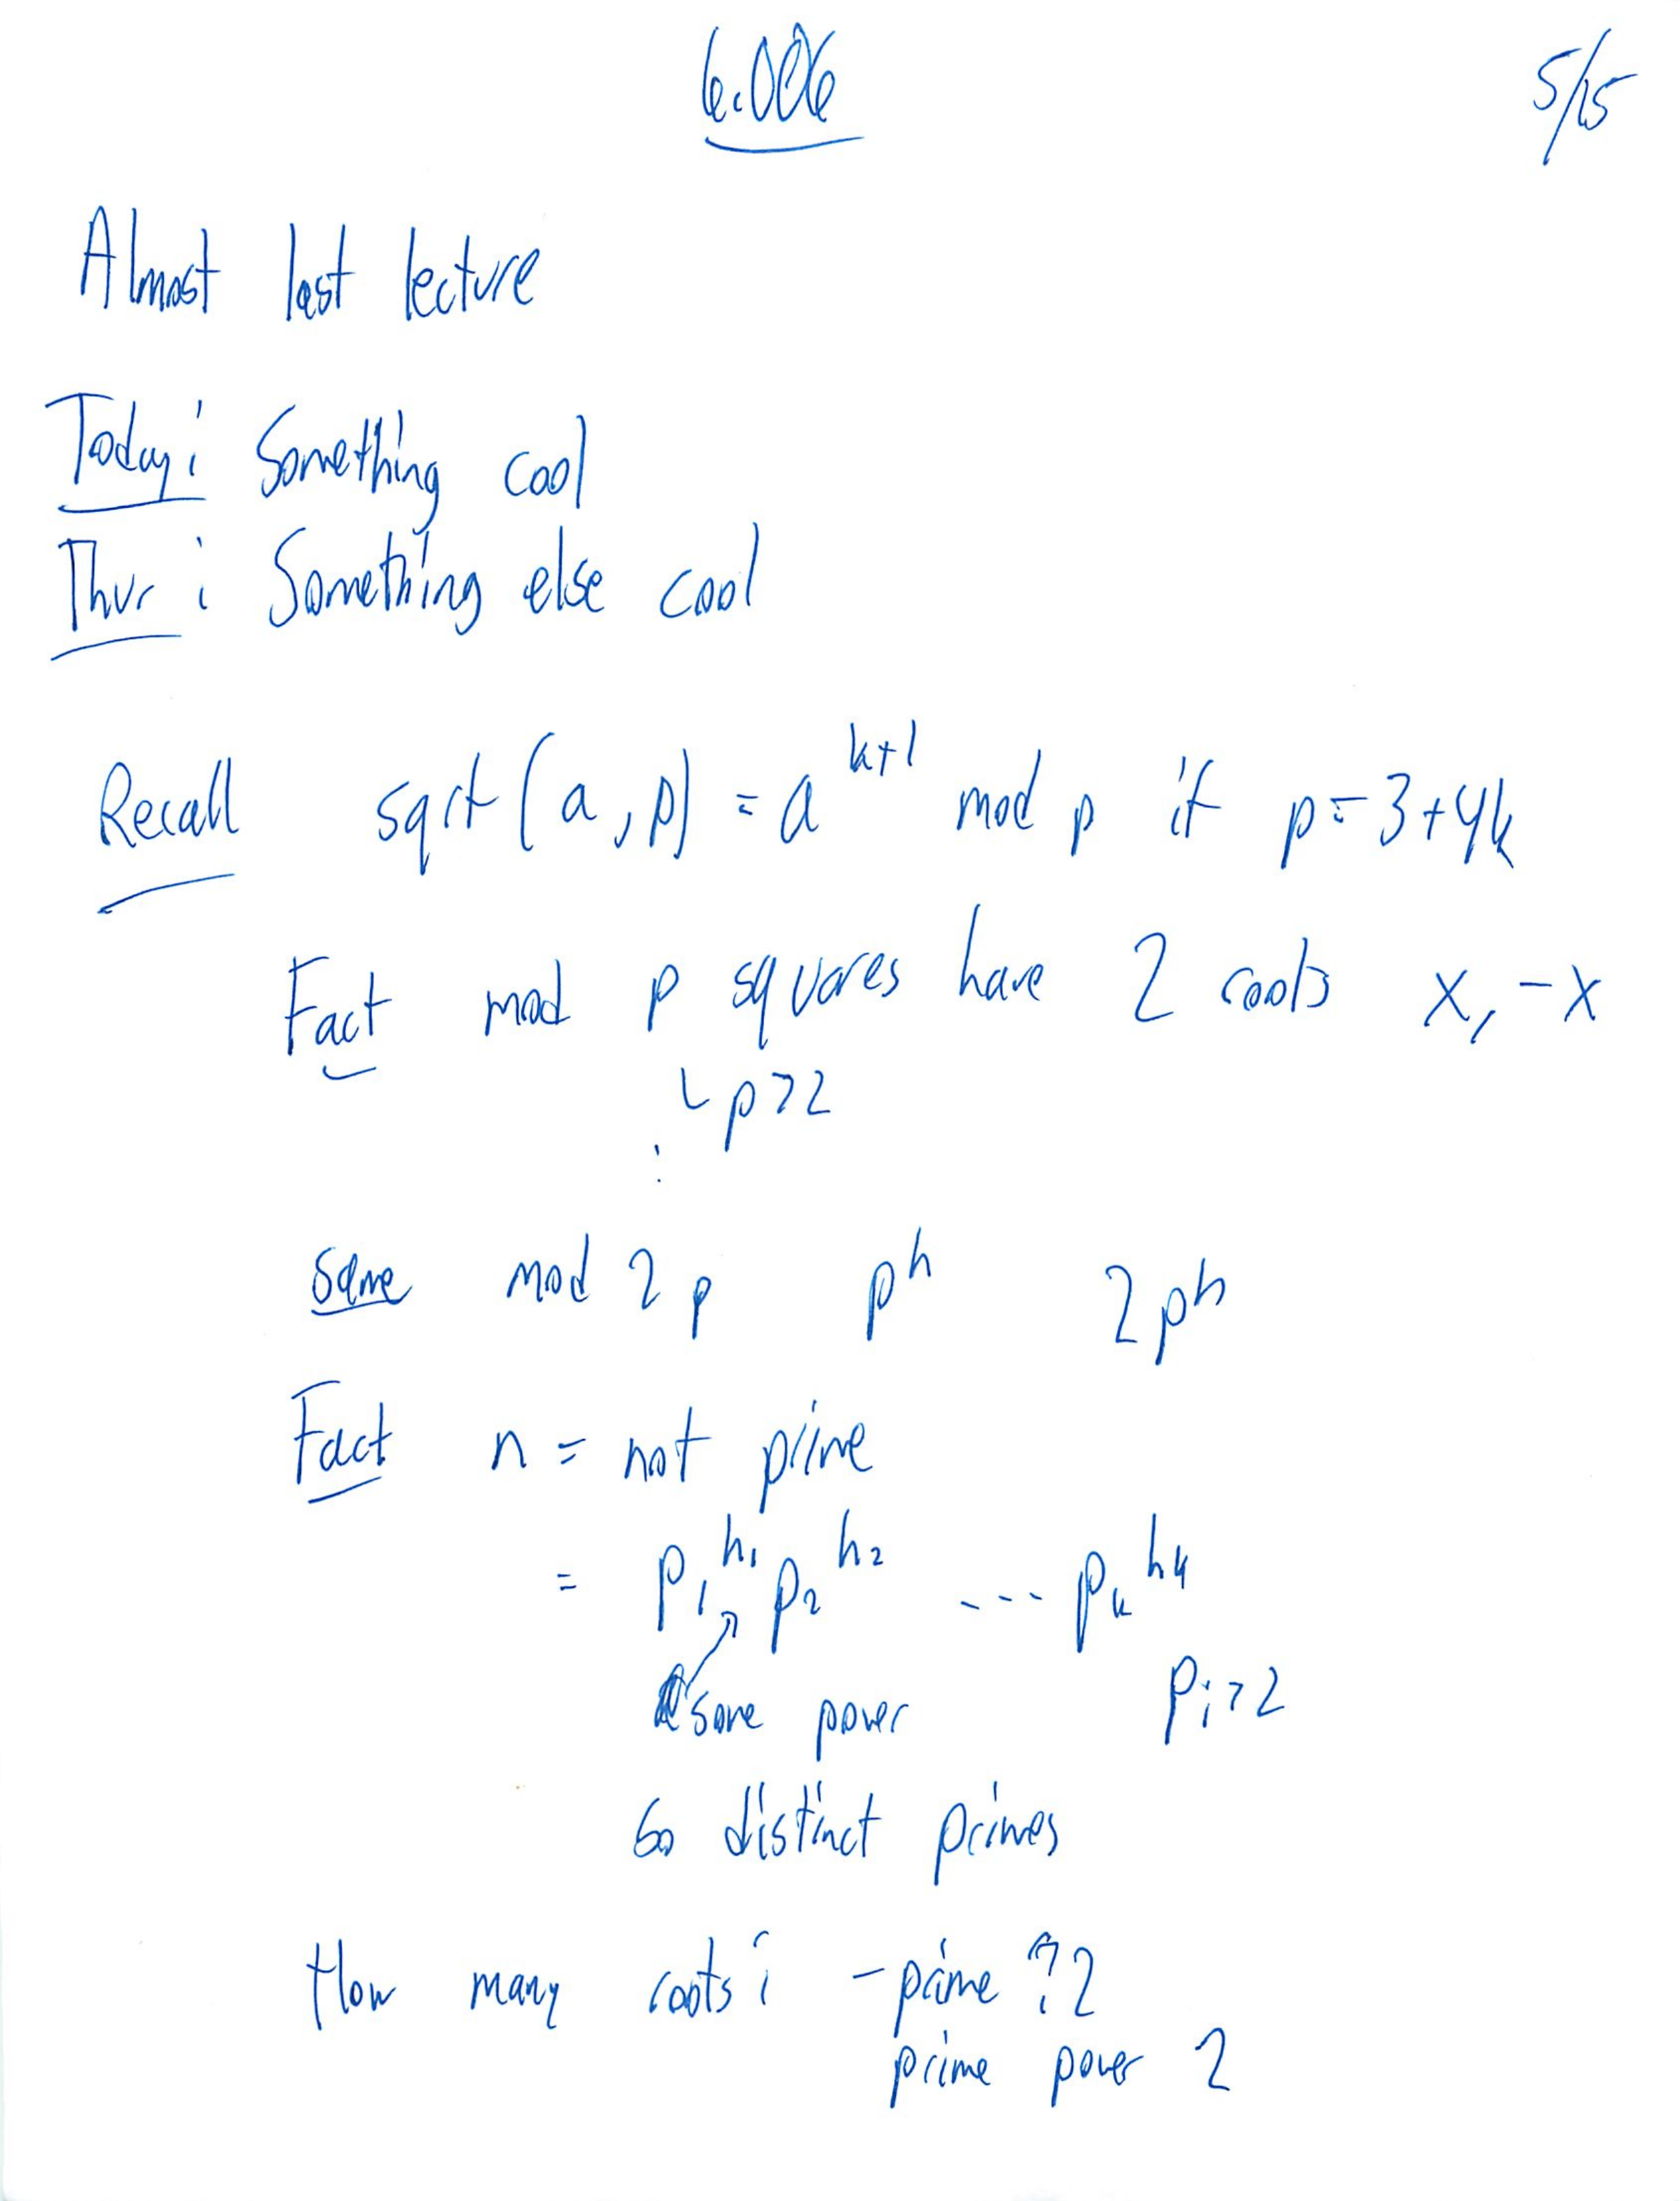 6.006
5/15
Almost last lecture
Today: Something cool
Thur: Something else cool
Recall sqrt(a,p) = a^{k+1} mod p if p = 3+4k
Fact mod p squares have 2 roots x, -x
↳ p>2
:
Same mod 2p p^h 2p^h
Fact n = not prime
= p_1^{h_1} p_2^{h_2} ---- p_k^{h_k}
some power p_i > 2
so distinct primes
How many roots: - prime : 2
prime power 2